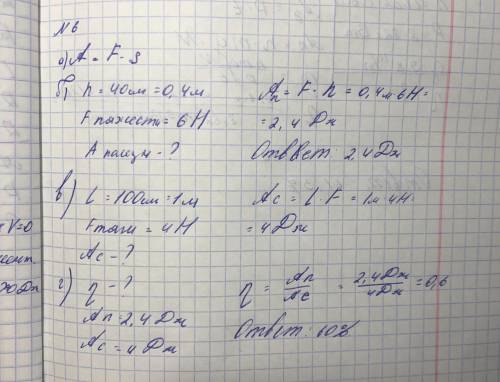 №6
а) A = F · S
б) h = 40см = 0,4м
Fтяжести = 6Н
А полезн - ?
Aп = F · h = 0,4м · 6Н =
= 2,4 Дж
Ответ: 2,4 Дж
в) l = 100см = 1м
Fтяги = 4Н
Ac - ?
Ac = l · F = 1м · 4Н
= 4 Дж
г) η - ?
Aп = 2,4 Дж
Ac = 4 Дж
η = Aп/Ac = 2,4Дж/4Дж = 0,6
Ответ: 60%
V=0